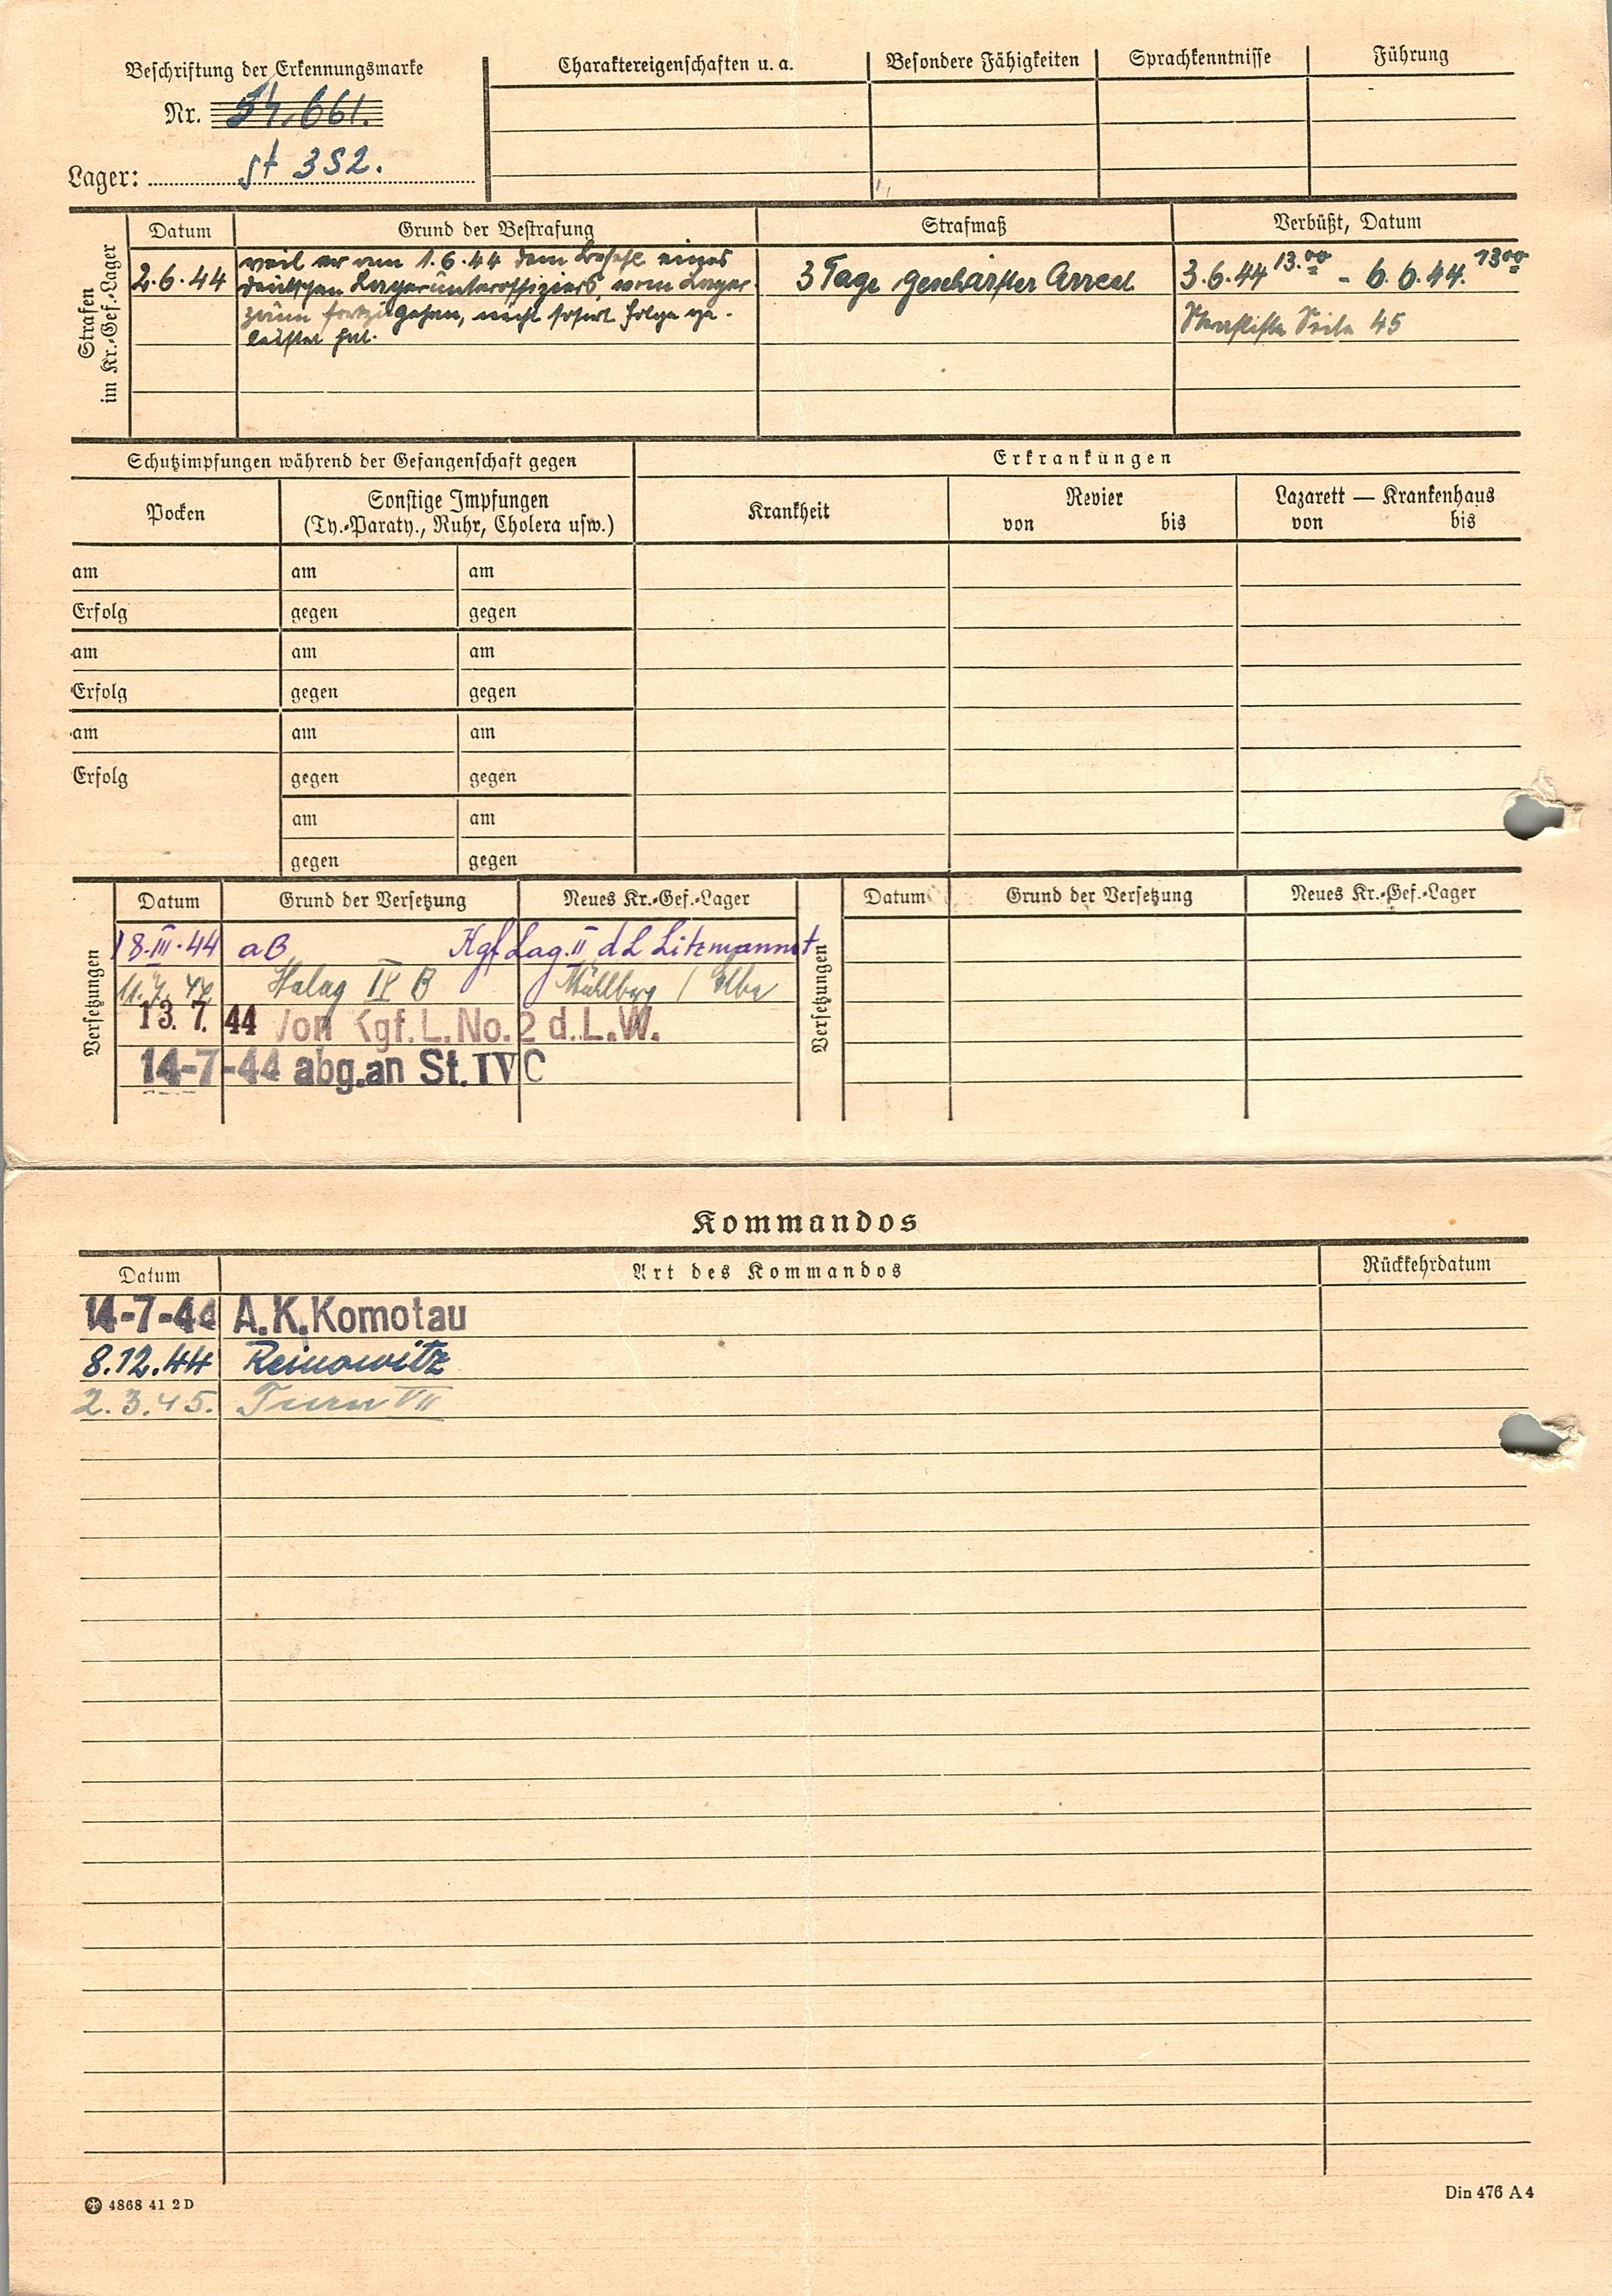 Beschriftung der Erkennungsmarke
Nr. 54.661.
Lager: St 352.
Charaktereigenschaften u. a.
Besondere Fähigkeiten
Sprachkenntnisse
Führung
Strafen
im Kr.-Gef.-Lager
Datum
Grund der Bestrafung
Strafmaß
Verbüßt, Datum
2.6.44
weil er am 1.6.44 dem Befehl eines
deutschen Lagerunteroffiziers, vom Lager-
zaun fortzugehen, nicht sofort Folge ge-
leistet hat.
3 Tage geschärfter Arrest
3.6.44 13.00 - 6.6.44. 1300
Strafliste Seite 45
Schutzimpfungen während der Gefangenschaft gegen
Erkrankungen
Pocken
Sonstige Impfungen
(Ty.-Paraty., Ruhr, Cholera usw.)
Krankheit
Revier
von bis
Lazarett — Krankenhaus
von bis
am am am
Erfolg gegen gegen
am am am
Erfolg gegen gegen
am am am
Erfolg gegen gegen
am am
gegen gegen
Versetzungen
Datum
Grund der Versetzung
Neues Kr.-Gef.-Lager
18.III.44 aB Kgf Lag. II d L Litzmannst
11.7.44 Stalag IV B Mühlberg / Elbe
13. 7. 44 Von Kgf. L. No. 2 d. L. W.
14-7-44 abg. an St. IV C
Versetzungen
Datum
Grund der Versetzung
Neues Kr.-Gef.-Lager
Kommandos
Datum
Art des Kommandos
Rückkehrdatum
14-7-44 A.K. Komotau
8.12.44 Reinowitz
2.3.45. Turn VII
4868 41 2 D
Din 476 A 4